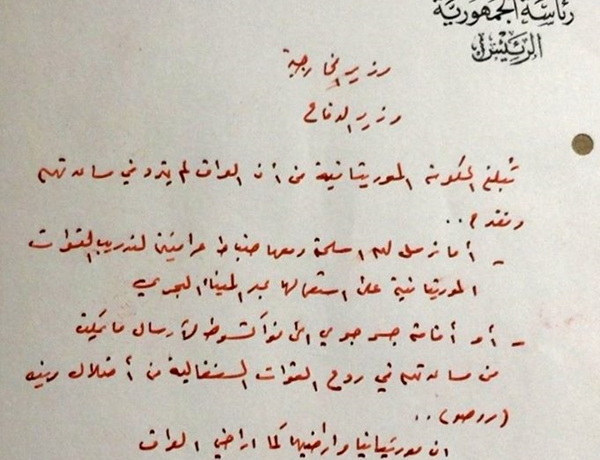 رئاسة الجمهورية
الرئيس
وزير الخارجية
وزير الدفاع
تبلغ الحكومة الموريتانية من أن العراق لم يتردد في مساندتهم
ونقدم..
- أما نرسل لهم اسلحة ومعها ضباط عراقيين لتدريب القوات
الموريتانية على استعمالها عبر الميناء البحري
- أو أقامة جسر جوي الى نواكشوط لأرسال ما يمكن
من مساندتهم في ردع القوات السنغالية من أحتلال مدينة
(روصو)..
ان موريتانيا واراضيها كما اراضي العراق